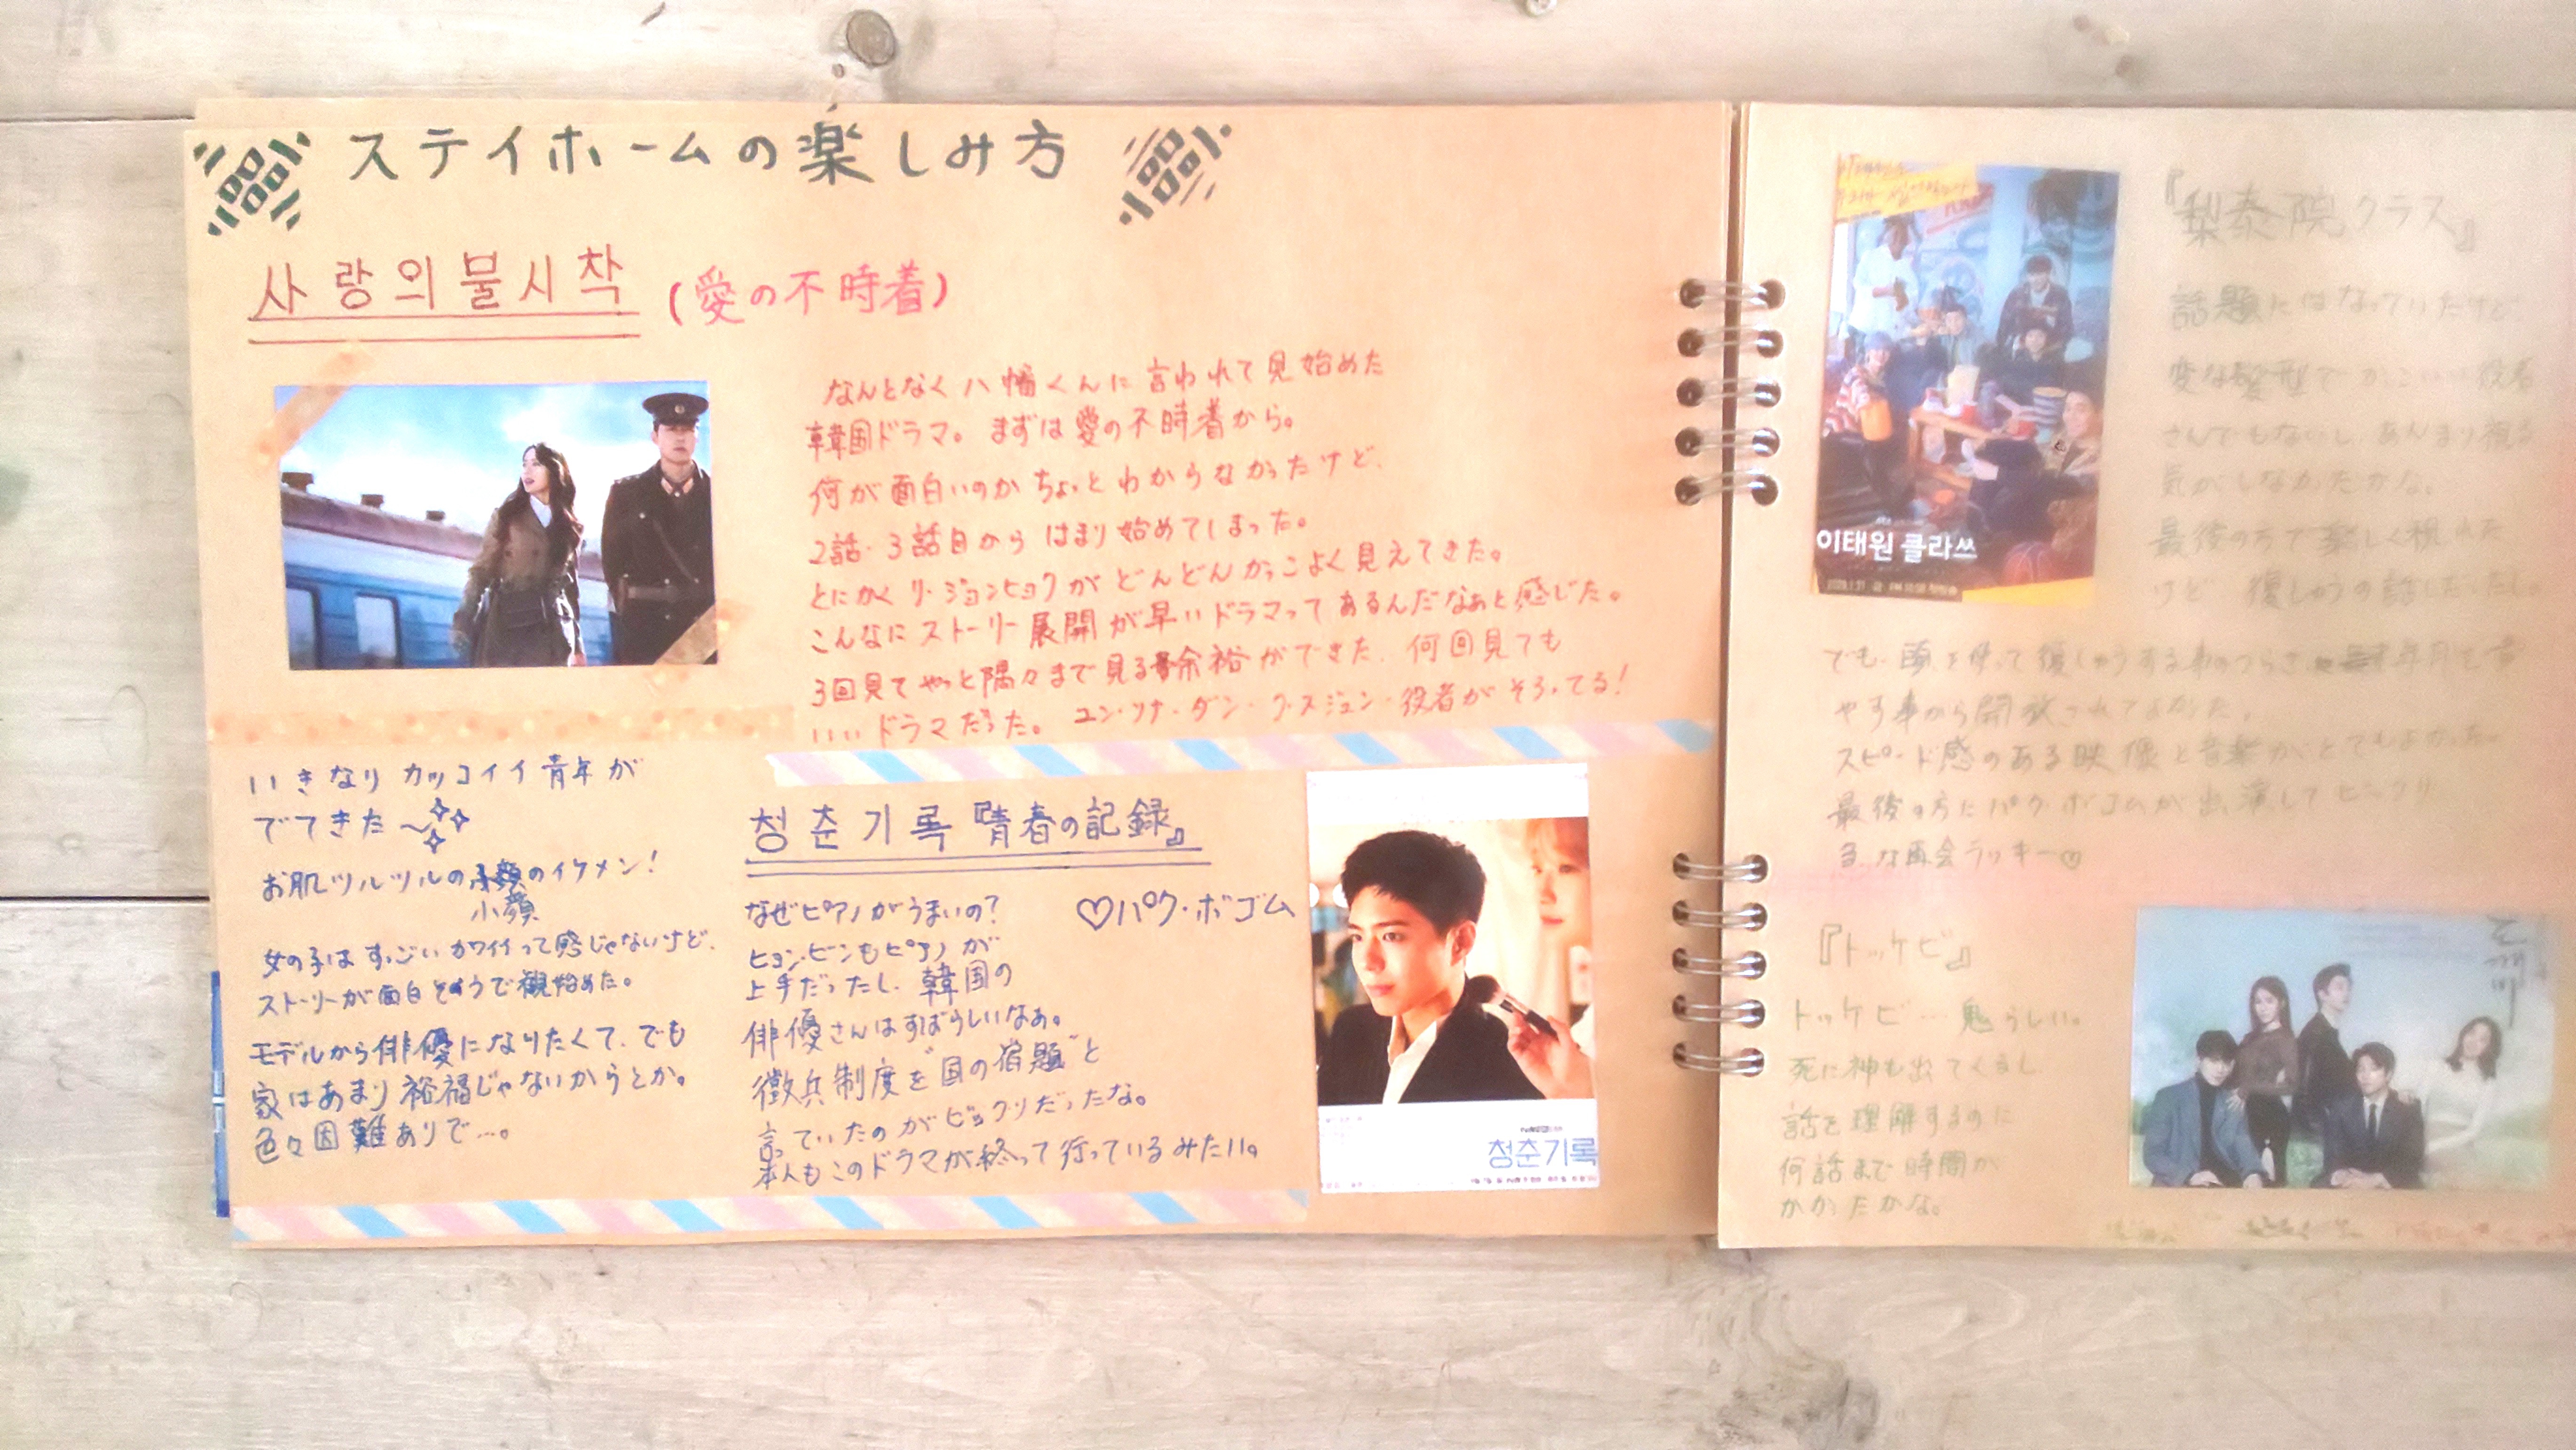 ステイホームの楽しみ方
사랑의불시착 (愛の不時着)
なんとなく八幡くんに言われて見始めた
韓国ドラマ。まずは愛の不時着から。
何が面白いのかちょっとわからなかったけど、
2話・3話目からはまり始めてしまった。
とにかくリ・ジョンヒョクがどんどんかっこよく見えてきた。
こんなにストーリー展開が早いドラマってあるんだなぁと感じた。
3回見てやっと隅々まで見る余裕ができた、何回見ても
いいドラマだった。ユン・ソナ・ダン・ク・スジュン・役者がそろってる!
いきなりカッコイイ青年が
でてきた〜
お肌ツルツルの小顔のイケメン!
小顔
女の子はすっごいカワイイって感じゃないけど、
ストーリーが面白そうで観始めた。
モデルから俳優になりたくて、でも
家はあまり裕福じゃないからとか。
色々困難ありで…。
청춘기록『青春の記録』
なぜピアノがうまいの?
♡パク・ボゴム
ヒョンビンもピアノが
上手だったし、韓国の
俳優さんはすばらしいなぁ。
徴兵制度を"国の宿題"と
言っていたのがビックリだったな。
本人もこのドラマが終って行っているみたい。
청춘기록
이태원 클라쓰
『梨泰院クラス』
話題にはなっていたけど
変な髪型でかっこいい役者
さんでもないし、あんまり観る
気がしなかったかな。
最後の方で楽しく観れた
けど 復しゅうの話しだったし。
でも、頭を使って復しゅうする事のつらさ 年月を費
やす事から開放されてよかった。
スピード感のある映像と音楽がとてもよかった
最後の方にパク・ボゴムが出演してビックリ
急な再会ラッキー♡
『トッケビ』
トッケビ…鬼らしい。
死に神も出てくるし
話を理解するのに
何話まで時間が
かかったかな。
도깨비